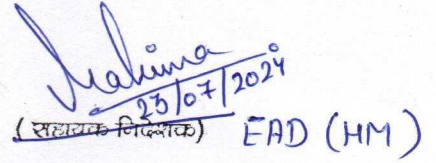 Mahima
23/07/2024
(सहायक निदेशक) EAD (HM)